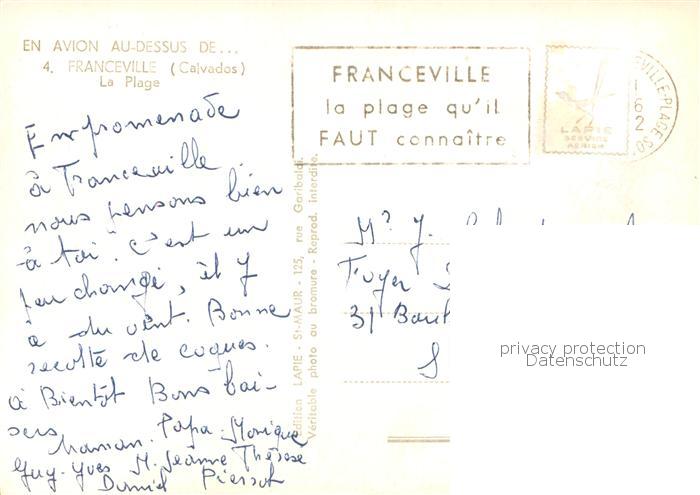 EN AVION AU-DESSUS DE...
4. FRANCEVILLE (Calvados)
La Plage
FRANCEVILLE
la plage qu'il
FAUT connaître
LAPIE
SERVICE
AERIEN
VILLE-PLAGE
En promenade
à Franceville
nous pensons bien
à toi. C'est un
peu changé, et y
a du vent. Bonne
recolte de coques.
à Bientôt Bons bai-
sers
Maman. Papa. Monique
Guy. Yves M. Jeanne Thérèse
Daniel Pierrot
Edition LAPIE - St-MAUR - 125, rue Garibaldi.
Véritable photo au bromure - Reprod. interdite.
Mr J.
Foyer
31 Boul
S
privacy protection
Datenschutz